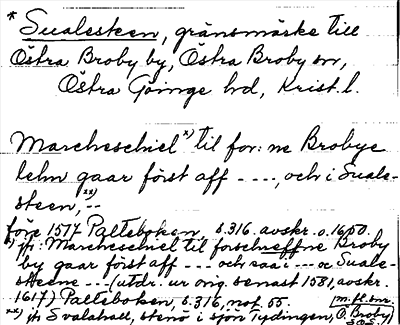 * Sualesteen, gränsmärke till
Östra Broby by, Östra Broby sn,
Östra Göinge hd, Krist. l.
Marcheschiel x) til for: ne Brobye
lehn gaar först aff - - - -, och i Suale-
steen, xx) --
före 1577 Palteboken, s. 316. avskr. o. 1600.
x) jfr: Marcheschiel til forschreffne Broby
by gaar först aff --- och saa i --- oc Suale-
steene --- (utdr. ur orig. senast 1581, avskr.
1617) Palteboken, s. 316, not 55.
xx) jfr Svalahall, stenö i sjön Tydingen,
[m. fl. snr.
Ö. Broby
SOS.